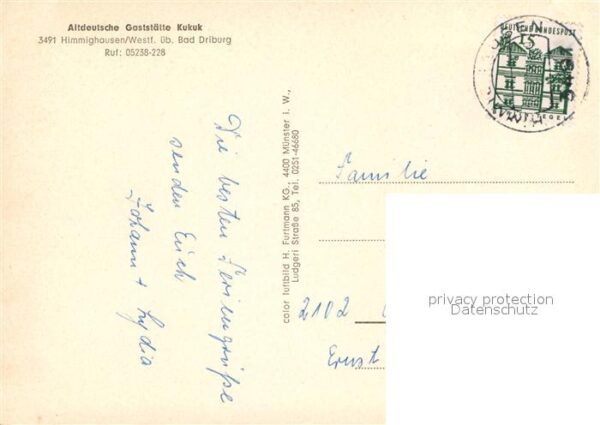 Altdeutsche Gaststätte Kukuk
3491 Himmighausen/Westf. üb. Bad Driburg
Ruf: 05238-228
Die besten Feriengrüße
senden Euch
Johann + Lydia
color luftbild H. Furtmann KG., 4400 Münster i. W.,
Ludgeri Straße 85, Tel. 0251-46680
DEUTSCHE BUNDESPOST
TEGEL
Familie
2102
Ernst
privacy protection
Datenschutz